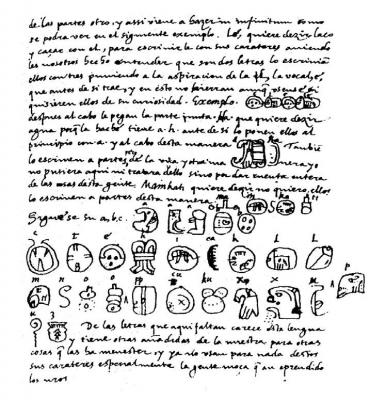 de las partes otro, y assi viene a hazer in infinitum como
se podra ver en el siguiente exemplo. Le, quiere dezir laço
y caçar con el, para escrivirle con sus carateres aviendo
les nosotros hecho entender que son dos letras lo escrivian
ellos con tres puniendo a la aspiracion de la l, la vocal, e,
que antes de si trae, y en esto no hierran aunq usense si
quisieren ellos de su curiosidad. Exemplo.
despues al cabo le pegan la parte junta. ha. que quiere dezir
agua porq la hache tiene .a.h. ante de si lo ponen ellos al
principio con .a. y al cabo desta manera ha Tambiē
lo escriven a partes, de la una y otra manera, yo no
pusiera aqui ni tratara dello sino por dar cuenta entera
de las cosas desta gente. Mainkati quiere dezir no quiero, ellos
lo escriven a partes desta manera. ma i n ka ti
Siguese su a.b.c. a a a b b
c t e h i ca k l l
m n o o pp cu ku x x u p
u z De las letras que aqui faltan carece esta lengua
y tiene otras añadidas de la nuestra para otras
cosas q las ha menester, y ya no usan para nada destos
sus carateres especialmente la gente moça q an aprendido
los nr̄os